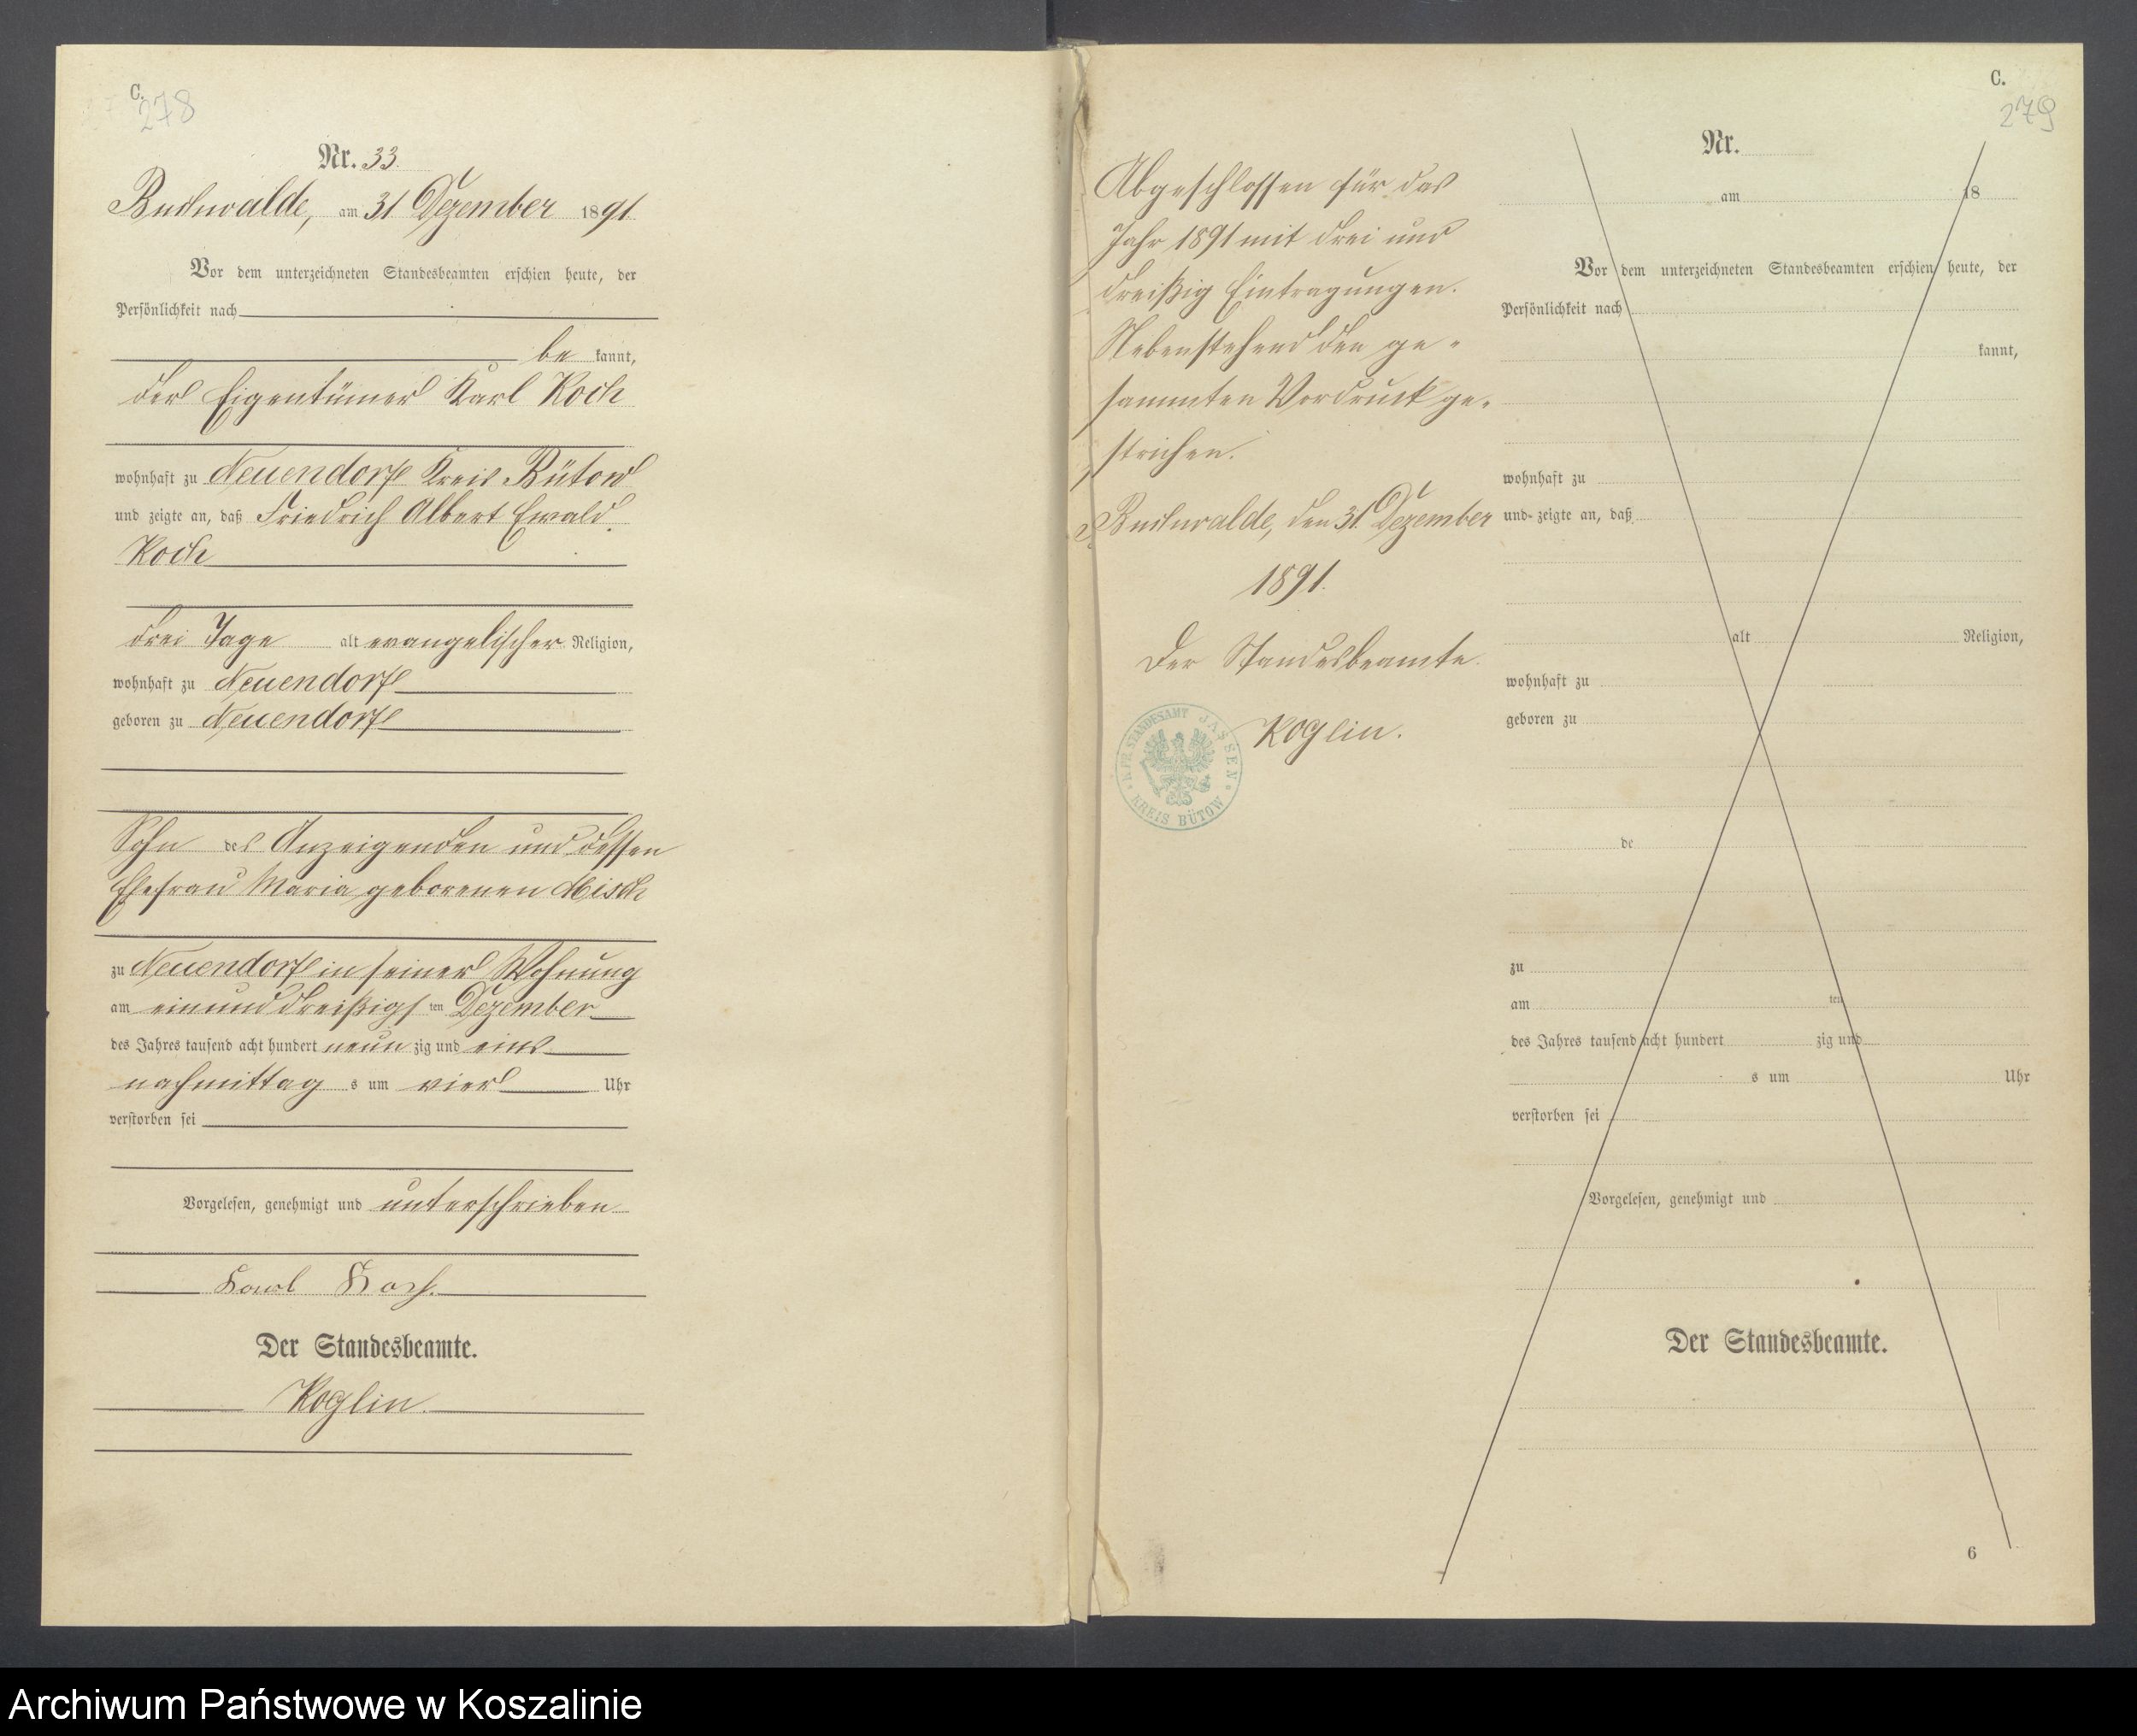 C.
278
Nr. 33.
Buchwalde, am 31 Dezember 1891.
Vor dem unterzeichneten Standesbeamten erschien heute, der
Persönlichkeit nach
be kannt,
der Eigentümer Karl Koch
wohnhaft zu Neuendorf Kreis Bütow
und zeigte an, daß Friedrich Albert Ewald
Koch
drei Tage alt evangelischer Religion,
wohnhaft zu Neuendorf
geboren zu Neuendorf
Sohn des Anzeigenden und dessen
Ehefrau Maria geborenen Misch
zu Neuendorf in seiner Wohnung
am einunddreißigsten Dezember
des Jahres tausend acht hundert neun zig und eins
nachmittag s um vier Uhr
verstorben sei
Vorgelesen, genehmigt und unterschrieben
Karl Koch.
Der Standesbeamte.
Koglin.
Abgeschlossen für das
Jahr 1891 mit drei und
dreißig Eintragungen.
Nebenstehend den ge-
sammten Vordruck ge-
strichen.
Buchwalde, den 31. Dezember
1891.
Der Standesbeamte.
Koglin.
KPR. STANDESAMT JASSEN
KREIS BÜTOW
C.
279
Nr.
am 18
Vor dem unterzeichneten Standesbeamten erschien heute, der
Persönlichkeit nach
kannt,
wohnhaft zu
und zeigte an, daß
alt Religion,
wohnhaft zu
geboren zu
de
zu
am ten
des Jahres tausend acht hundert zig und
s um Uhr
verstorben sei
Vorgelesen, genehmigt und
Der Standesbeamte.
6
Archiwum Państwowe w Koszalinie